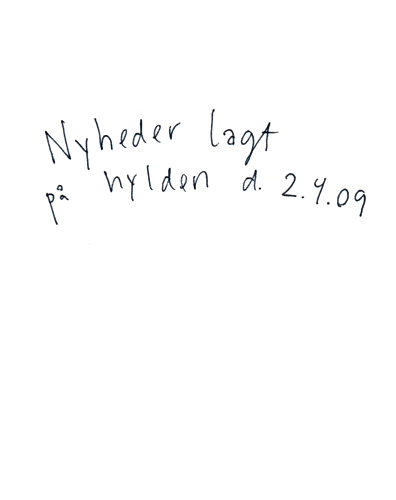 Nyheder lagt
på hylden d. 2.4.09